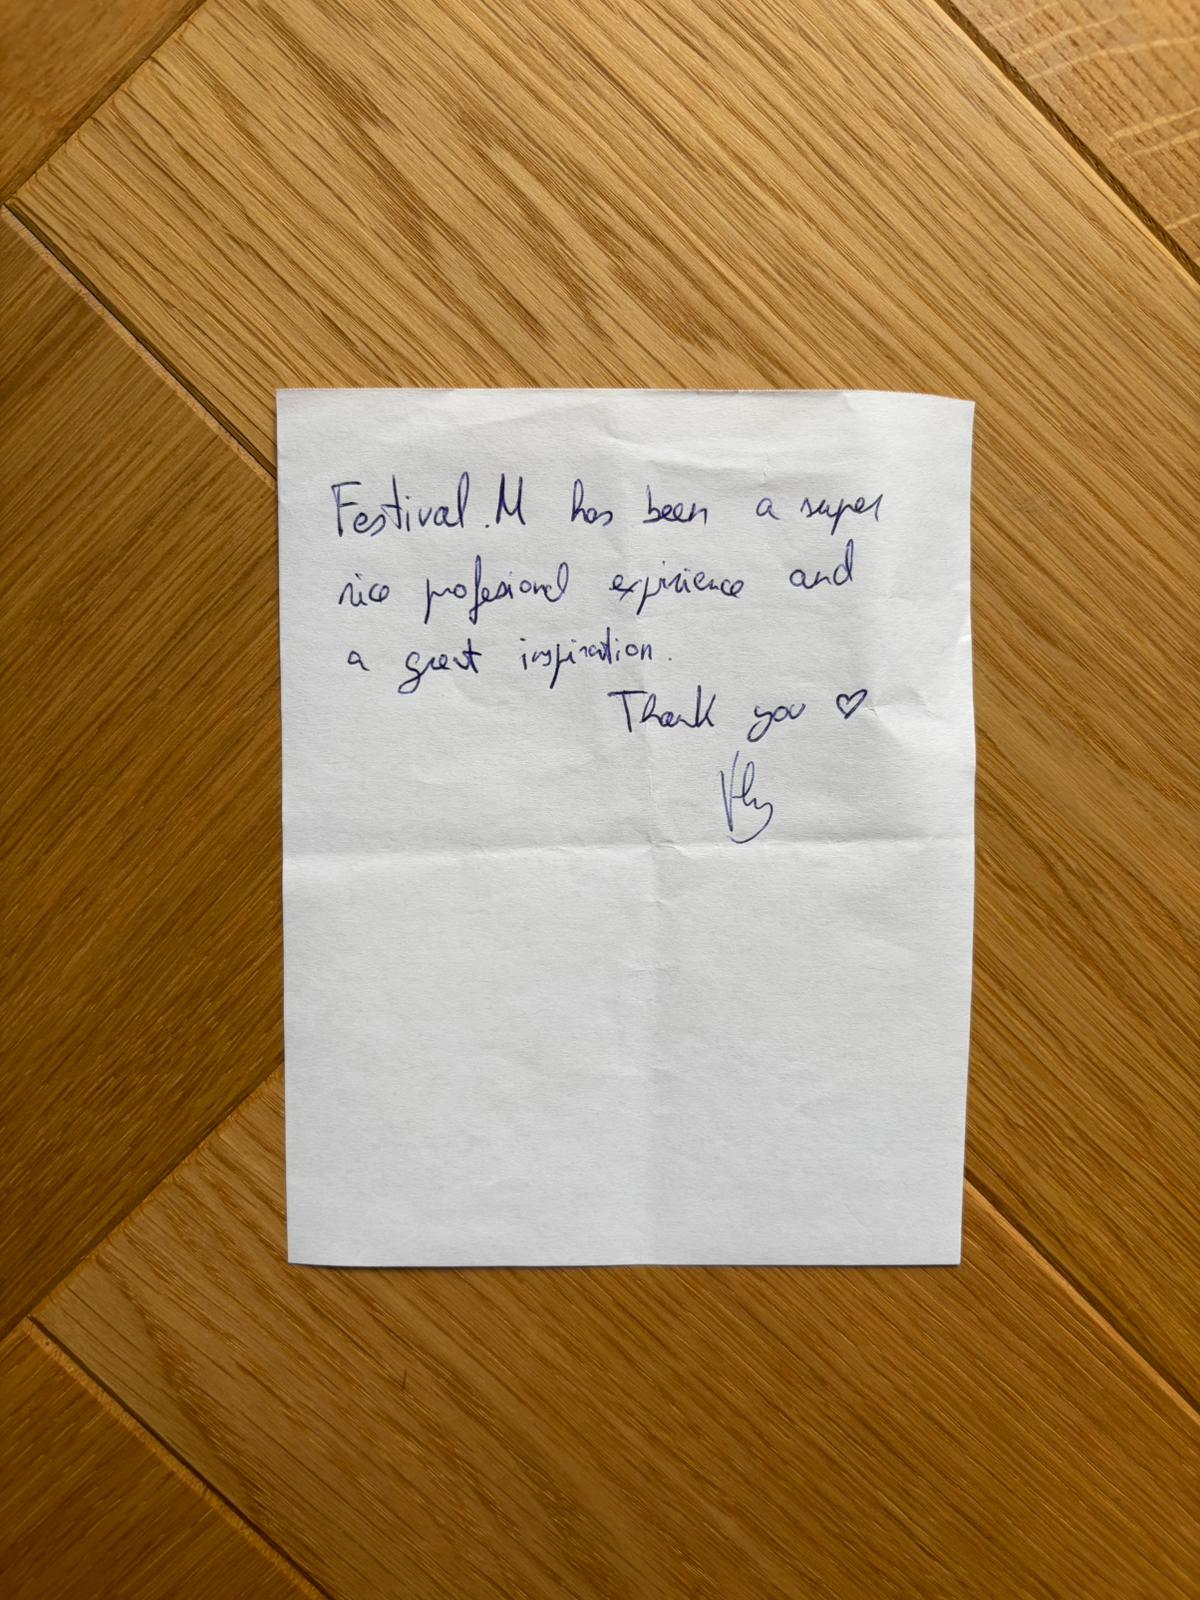 Festival.M has been a super
nice profesional expirience and
a great inspiration.
Thank you ♡